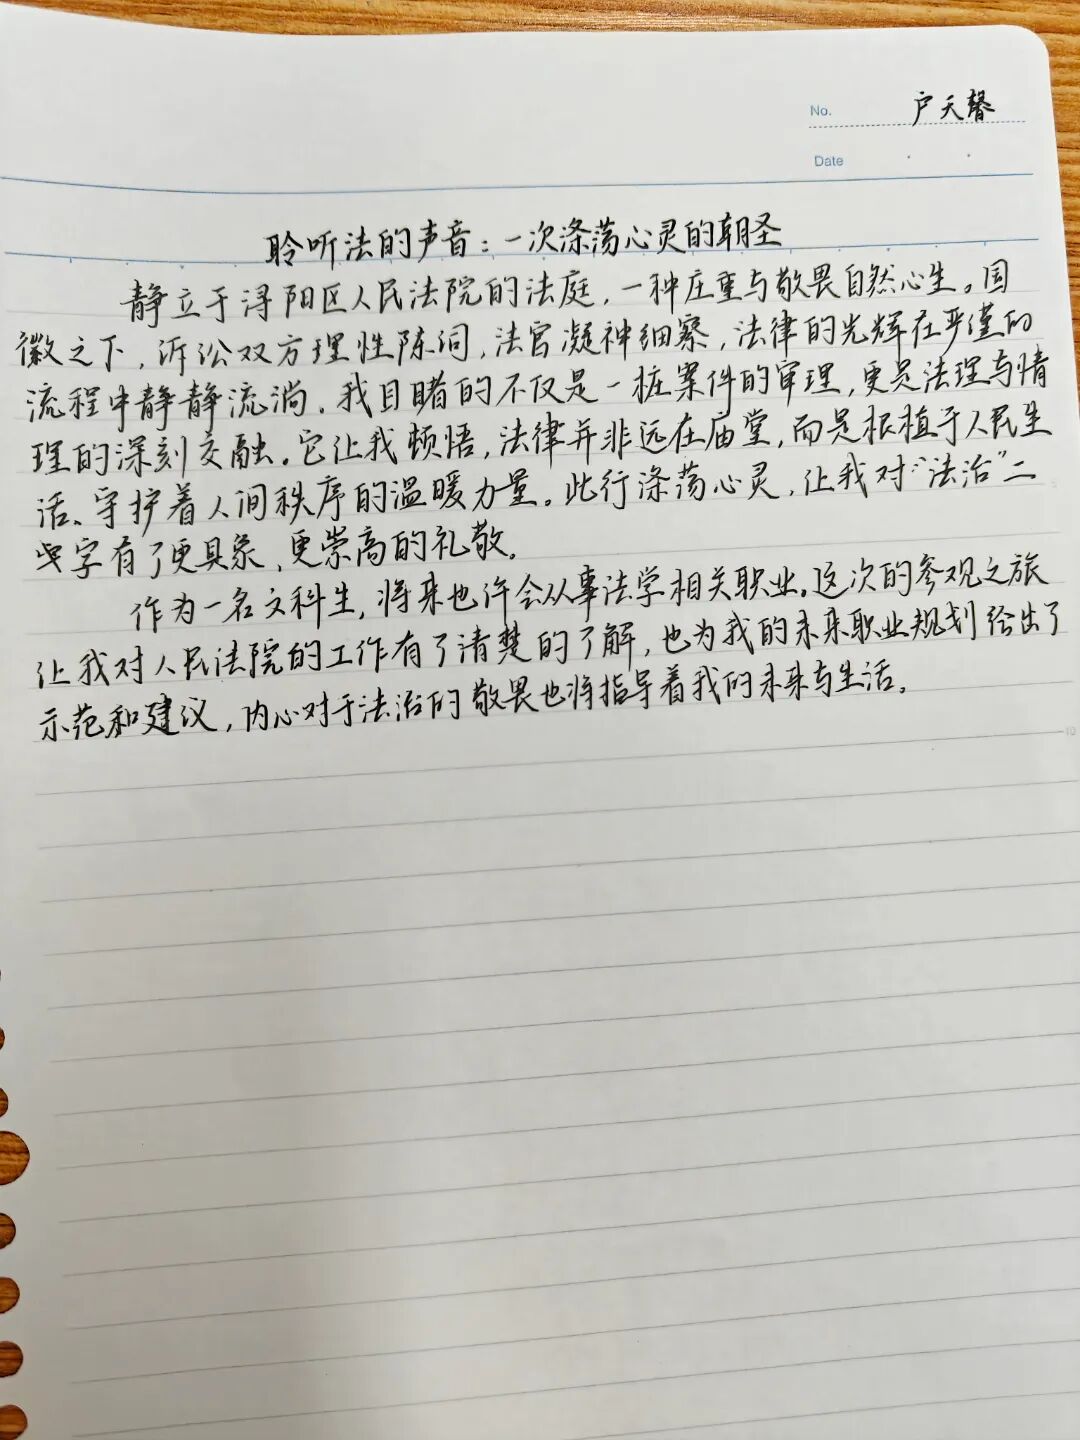 No. 户天馨
Date
聆听法的声音：一次涤荡心灵的朝圣
静立于浔阳区人民法院的法庭，一种庄重与敬畏自然心生。国
徽之下，诉讼双方理性陈词，法官凝神细察，法律的光辉在严谨的
流程中静静流淌。我目睹的不仅是一桩案件的审理，更是法理与情
理的深刻交融。它让我顿悟，法律并非远在庙堂，而是根植于人民生
活、守护着人间秩序的温暖力量。此行涤荡心灵，让我对“法治”二
字有了更具象、更崇高的礼敬。
作为一名文科生，将来也许会从事法学相关职业。这次的参观之旅
让我对人民法院的工作有了清楚的了解，也为我的未来职业规划给出了
示范和建议，内心对于法治的敬畏也将指导着我的未来与生活。
10